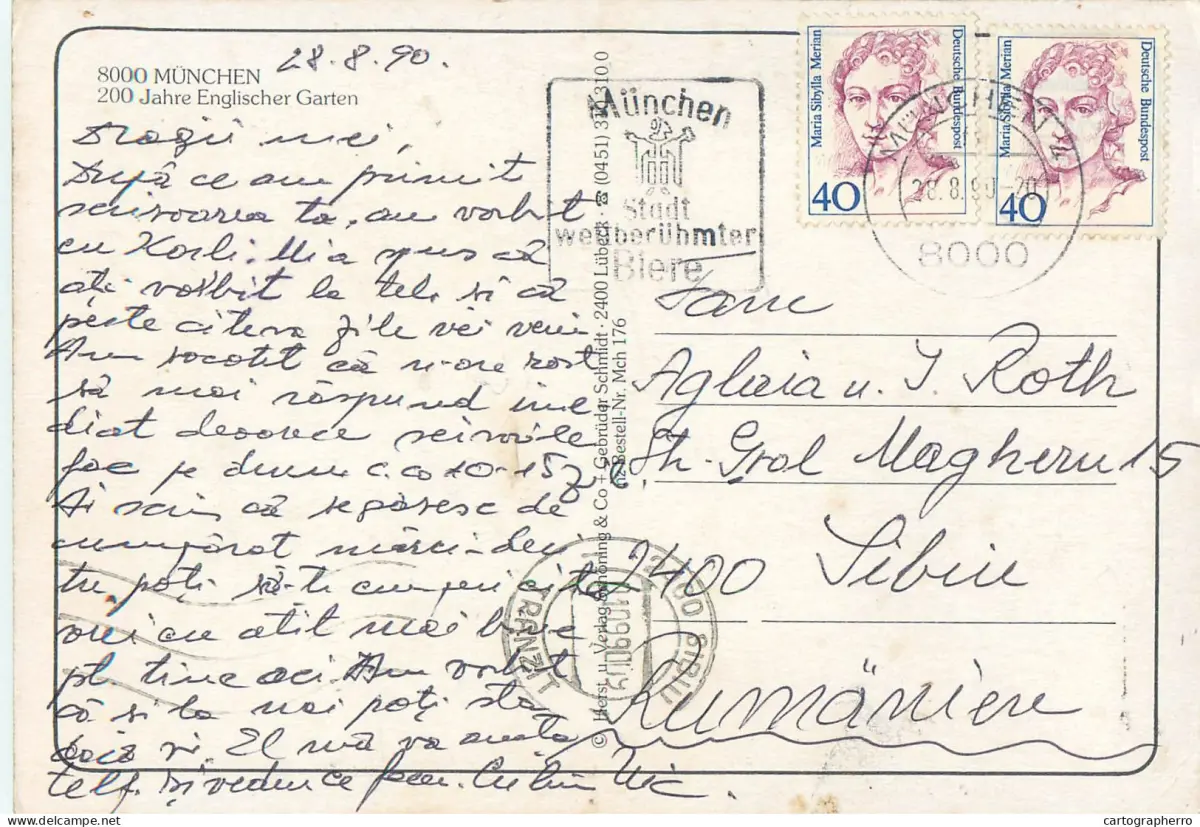 28.8.90.
8000 MÜNCHEN
200 Jahre Englischer Garten
Dragii mei,
După ce am primit
scrisoarea ta, am vorbit
cu Korli. Mi-a spus că
ați vorbit la tel. și că
peste cîteva zile vei veni
Am socotit că n-are rost
să mai răspund ime
diat deoarece scrisorile
fac pe drum c.ca 10-15 z
Ai scris că
cumpărat mărci-deci
tu poți să-ți cumperi cît
vrei cu atît mai bine
pt. tine aci. Am vorbit
că și la noi poți sta
El mă va anunța
telf. Și vedem ce facem. Cu bine Nic.
© Herst. u. Verlag Schöning & Co + Gebrüder Schmidt · 2400 Lübeck · ☎ (0451) 3 10 310 0
Bestell-Nr. Mch 176
München
Stadt
weltberühmter
Biere
Maria Sibylla Merian
Deutsche Bundespost
40
Maria Sibylla Merian
Deutsche Bundespost
40
MÜNCHEN
28.8.90-20
8000
Fam
Aglaia u. I. Roth
Str. Gral Magheru 15
2400 Sibiu
Rumänien
2400 SIBIU
TRANZIT
cartographerro